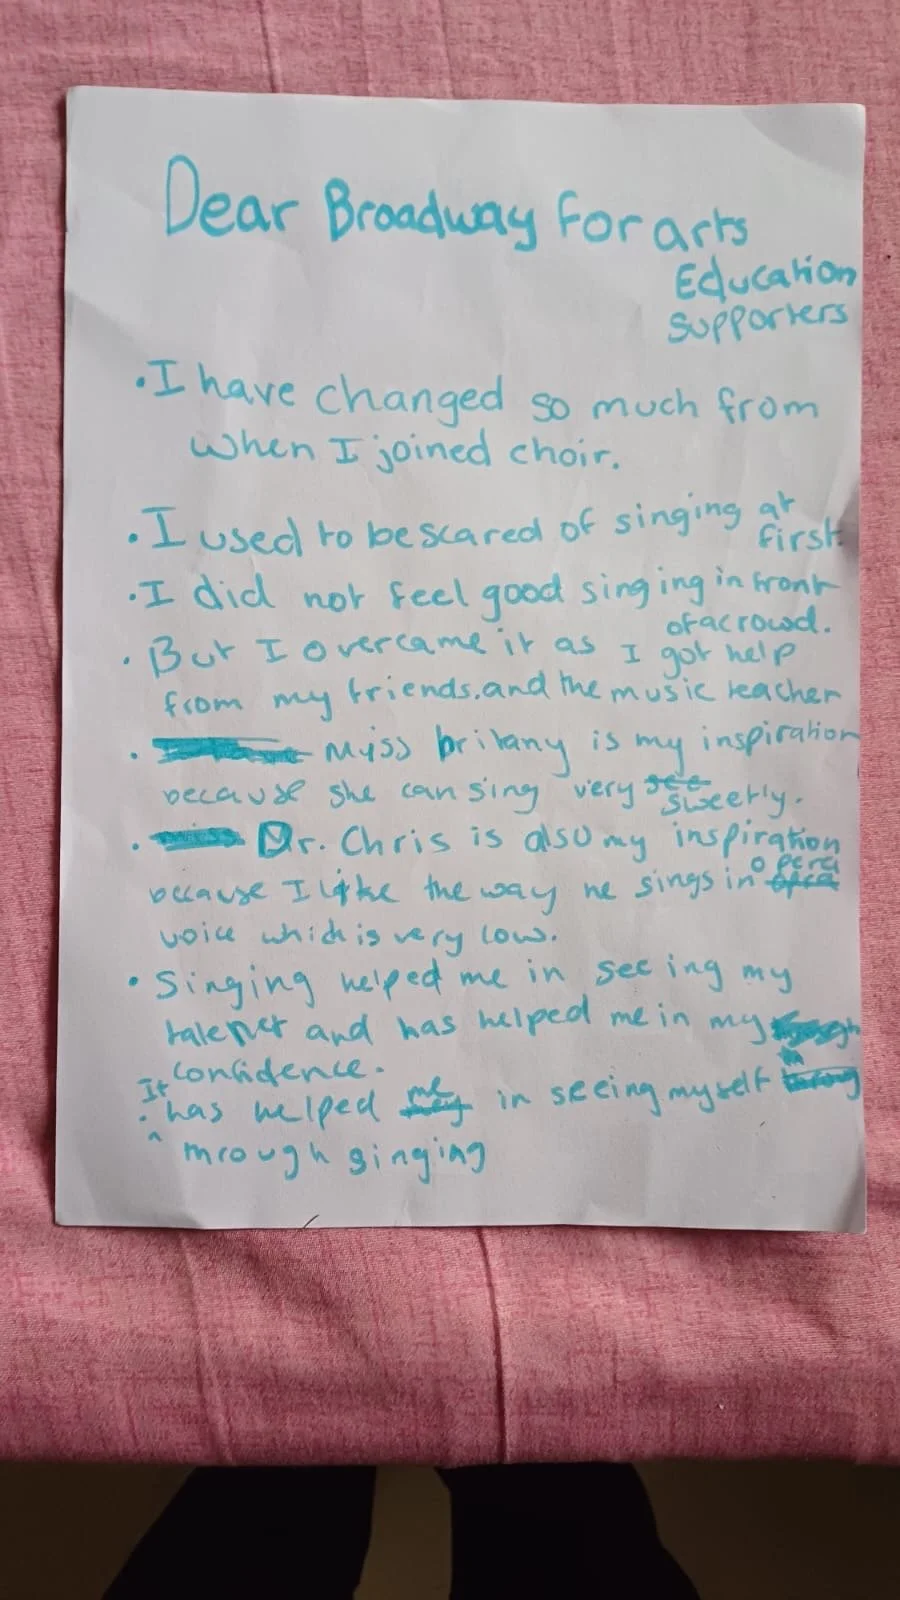 Dear Broadway For arts
Education
Supporters
• I have changed so much from
when I joined choir.
• I used to be scared of singing at
first.
• I did not feel good singing in front
of a crowd.
• But I overcame it as I got help
from my friends. and the music teacher
• Myss britany is my inspiration
because she can sing very see
sweetly.
• Mr. Chris is also my inspiration
because I like the way he sings in opera
voice which is very low.
• Singing helped me in seeing my
talent and has helped me in my
confidence.
• It has helped me in seeing myself in
through singing